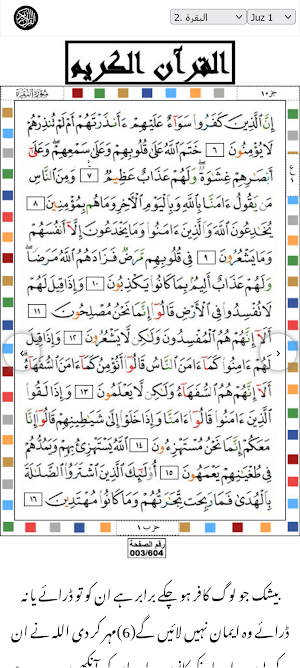 البقرة .2
Juz 1
القرآن الكريم
جزء ١
سُورَةُ البَقَرَةِ
إِنَّ الَّذِينَ كَفَرُوا سَوَاءٌ عَلَيْهِمْ ءَأَنذَرْتَهُمْ أَمْ لَمْ تُنذِرْهُمْ
لَا يُؤْمِنُونَ ٦ خَتَمَ اللَّهُ عَلَىٰ قُلُوبِهِمْ وَعَلَىٰ سَمْعِهِمْ وَعَلَىٰ
أَبْصَارِهِمْ غِشَاوَةٌ وَلَهُمْ عَذَابٌ عَظِيمٌ ٧ وَمِنَ النَّاسِ
مَن يَقُولُ ءَامَنَّا بِاللَّهِ وَبِالْيَوْمِ الْآخِرِ وَمَا هُم بِمُؤْمِنِينَ ٨
يُخَادِعُونَ اللَّهَ وَالَّذِينَ ءَامَنُوا وَمَا يَخْدَعُونَ إِلَّا أَنفُسَهُمْ
وَمَا يَشْعُرُونَ ٩ فِي قُلُوبِهِم مَّرَضٌ فَزَادَهُمُ اللَّهُ مَرَضًا
وَلَهُمْ عَذَابٌ أَلِيمٌ بِمَا كَانُوا يَكْذِبُونَ ١٠ وَإِذَا قِيلَ لَهُمْ
لَا تُفْسِدُوا فِي الْأَرْضِ قَالُوا إِنَّمَا نَحْنُ مُصْلِحُونَ ١١
أَلَا إِنَّهُمْ هُمُ الْمُفْسِدُونَ وَلَٰكِن لَّا يَشْعُرُونَ ١٢ وَإِذَا قِيلَ
لَهُمْ ءَامِنُوا كَمَا ءَامَنَ النَّاسُ قَالُوا أَنُؤْمِنُ كَمَا ءَامَنَ السُّفَهَاءُ
أَلَا إِنَّهُمْ هُمُ السُّفَهَاءُ وَلَٰكِن لَّا يَعْلَمُونَ ١٣ وَإِذَا لَقُوا
الَّذِينَ ءَامَنُوا قَالُوا ءَامَنَّا وَإِذَا خَلَوْا إِلَىٰ شَيَاطِينِهِمْ قَالُوا إِنَّا
مَعَكُمْ إِنَّمَا نَحْنُ مُسْتَهْزِءُونَ ١٤ اللَّهُ يَسْتَهْزِئُ بِهِمْ وَيَمُدُّهُمْ
فِي طُغْيَانِهِمْ يَعْمَهُونَ ١٥ أُولَٰئِكَ الَّذِينَ اشْتَرَوُا الضَّلَالَةَ
بِالْهُدَىٰ فَمَا رَبِحَت تِّجَارَتُهُمْ وَمَا كَانُوا مُهْتَدِينَ ١٦
حزب ١
رقم الصفحة
003/604
بیشک جو لوگ کافر ہو چکے برابر ہے ان کو تو ڈرائے یا نہ
ڈرائے وہ ایمان نہیں لائیں گے(6)مہر کر دی اللہ نے ان